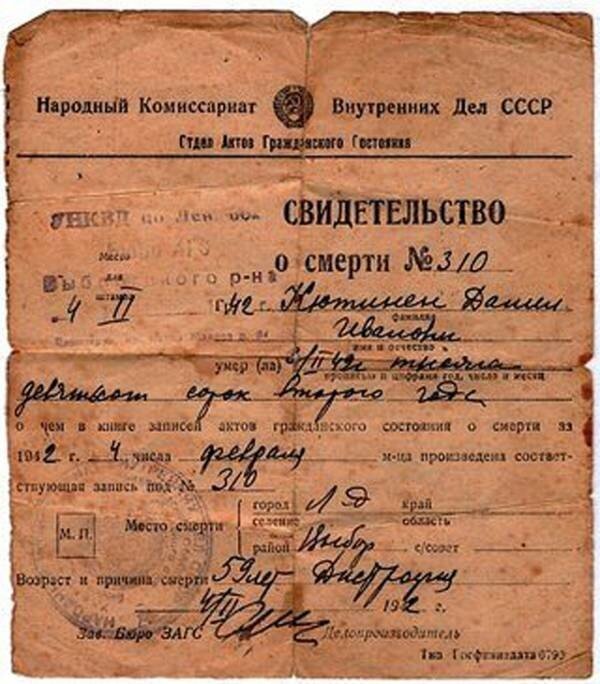 Народный Комиссариат Внутренних Дел СССР
Отдел Актов Гражданского Состояния
УНКВД по Лен. обл.
Бюро АГС
Выборгского р-на
Место для штампа
4 II 1942 г.
СВИДЕТЕЛЬСТВО
о смерти № 310
Кютинен Данил
фамилия
имя и отчество
умер (ла) /II 42г тысяча
прописью и цифрами год, число и месяц
девятьсот сорок второго года
о чем в книге записей актов гражданского состояния о смерти за
1942 г. 4 числа февраля м-ца произведена соответ-
ствующая запись под № 310
Место смерти
город Л-д край
селение область
район Выбор с/совет
М. П.
Возраст и причина смерти 59 лет Дистрофия
4/II 1942 г.
Зав. Бюро ЗАГС Делопроизводитель
Тип Госфиниздата 6793